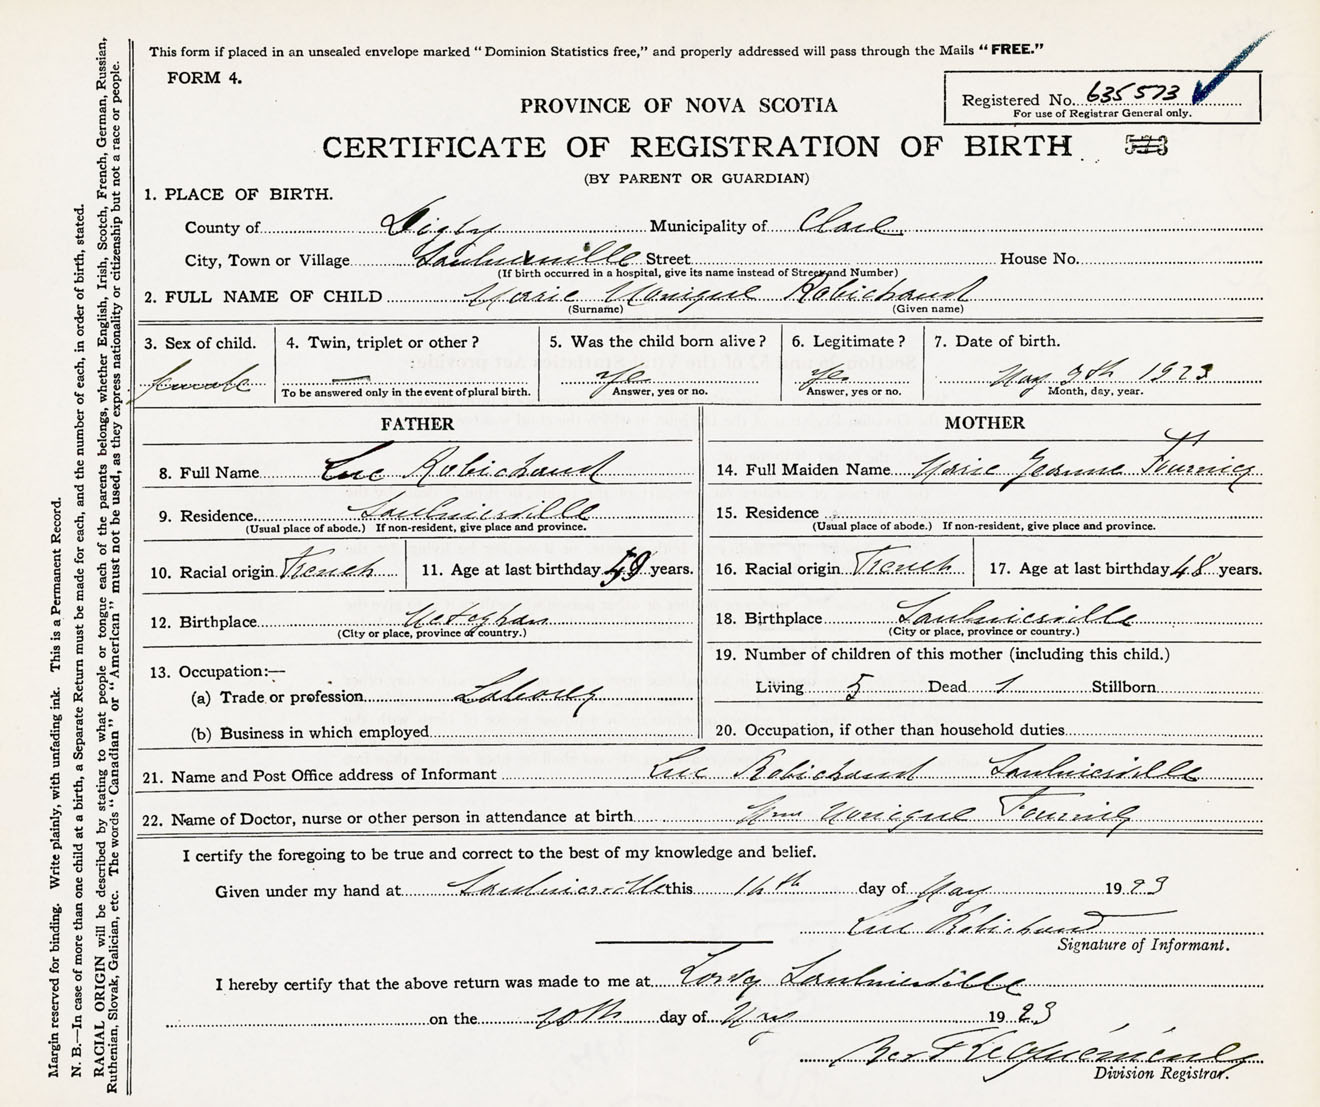 This form if placed in an unsealed envelope marked "Dominion Statistics free," and properly addressed will pass through the Mails "FREE."
FORM 4.
Registered No. 635573
For use of Registrar General only.
PROVINCE OF NOVA SCOTIA
CERTIFICATE OF REGISTRATION OF BIRTH
(BY PARENT OR GUARDIAN)
1. PLACE OF BIRTH.
County of Digby Municipality of Clare
City, Town or Village Saulnierville Street House No.
(If birth occurred in a hospital, give its name instead of Street and Number)
2. FULL NAME OF CHILD Marie Monique Robichaud
(Surname) (Given name)
3. Sex of child. 4. Twin, triplet or other? 5. Was the child born alive? 6. Legitimate? 7. Date of birth.
female — Yes Yes May 9th 1923
To be answered only in the event of plural birth. Answer, yes or no. Answer, yes or no. Month, day, year.
FATHER
8. Full Name Luc Robichaud
9. Residence Saulnierville
(Usual place of abode.) If non-resident, give place and province.
10. Racial origin French 11. Age at last birthday 59 years.
12. Birthplace Meteghan
(City or place, province or country.)
13. Occupation:—
(a) Trade or profession Laborer
(b) Business in which employed
MOTHER
14. Full Maiden Name Marie Jeanne
15. Residence
(Usual place of abode.) If non-resident, give place and province.
16. Racial origin French 17. Age at last birthday 48 years.
18. Birthplace Saulnierville
(City or place, province or country.)
19. Number of children of this mother (including this child.)
Living 5 Dead 1 Stillborn
20. Occupation, if other than household duties
21. Name and Post Office address of Informant Luc Robichaud Saulnierville
22. Name of Doctor, nurse or other person in attendance at birth Monique
I certify the foregoing to be true and correct to the best of my knowledge and belief.
Given under my hand at Saulnierville this 14th day of May 1923
Luc Robichaud
Signature of Informant.
I hereby certify that the above return was made to me at Saulnierville
on the day of May 1923
Division Registrar.
Margin reserved for binding. Write plainly, with unfading ink. This is a Permanent Record.
N. B.—In case of more than one child at a birth, a Separate Return must be made for each, and the number of each, in order of birth, stated.
RACIAL ORIGIN will be described by stating to what people or tongue each of the parents belongs, whether English, Irish, Scotch, French, German, Russian,
Ruthenian, Slovak, Galician, etc. The words "Canadian" or "American" must not be used, as they express nationality or citizenship but not a race or people.